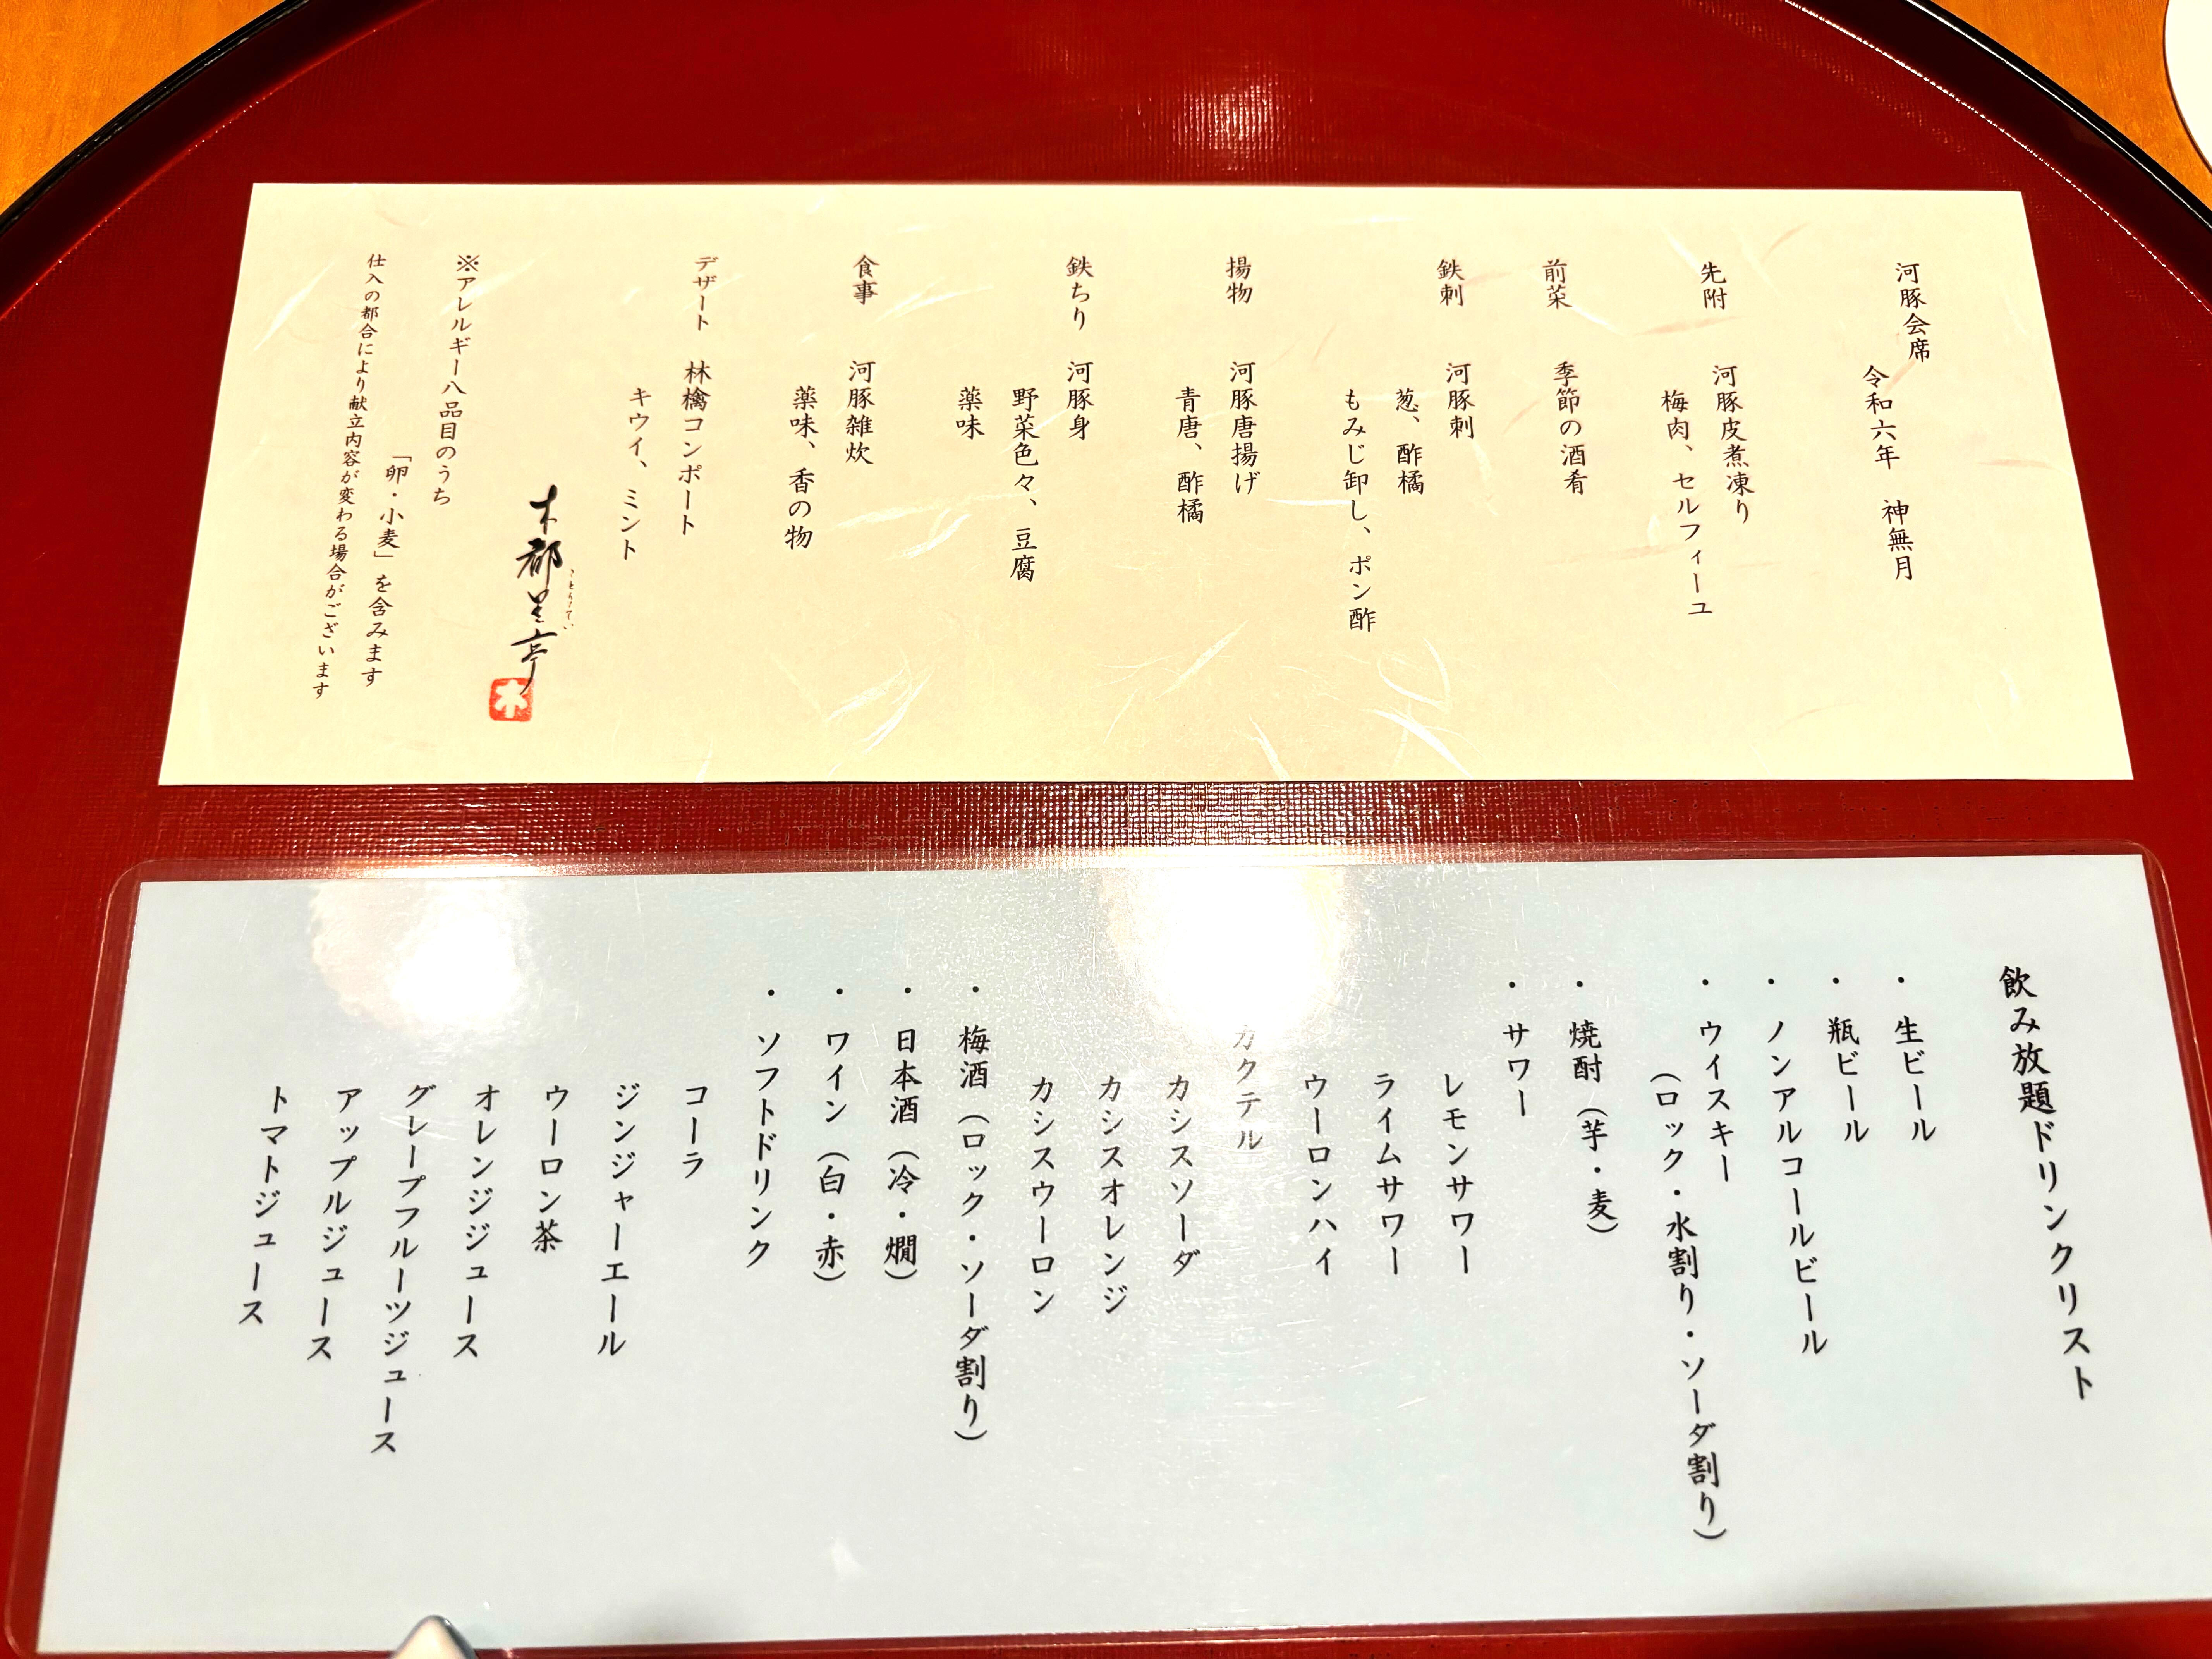 河豚会席
令和六年 神無月
先附 河豚皮煮凍り
梅肉、セルフィーユ
前菜 季節の酒肴
鉄刺 河豚刺
葱、酢橘
もみじ卸し、ポン酢
揚物 河豚唐揚げ
青唐、酢橘
鉄ちり 河豚身
野菜色々、豆腐
薬味
食事 河豚雑炊
薬味、香の物
デザート 林檎コンポート
キウイ、ミント
木都里亭
ことりてい
木
※アレルギー八品目のうち
「卵・小麦」を含みます
仕入の都合により献立内容が変わる場合がございます
飲み放題ドリンクリスト
・生ビール
・瓶ビール
・ノンアルコールビール
・ウイスキー
(ロック・水割り・ソーダ割り)
・焼酎(芋・麦)
・サワー
レモンサワー
ライムサワー
ウーロンハイ
カクテル
カシスソーダ
カシスオレンジ
カシスウーロン
・梅酒(ロック・ソーダ割り)
・日本酒(冷・燗)
・ワイン(白・赤)
・ソフトドリンク
コーラ
ジンジャーエール
ウーロン茶
オレンジジュース
グレープフルーツジュース
アップルジュース
トマトジュース